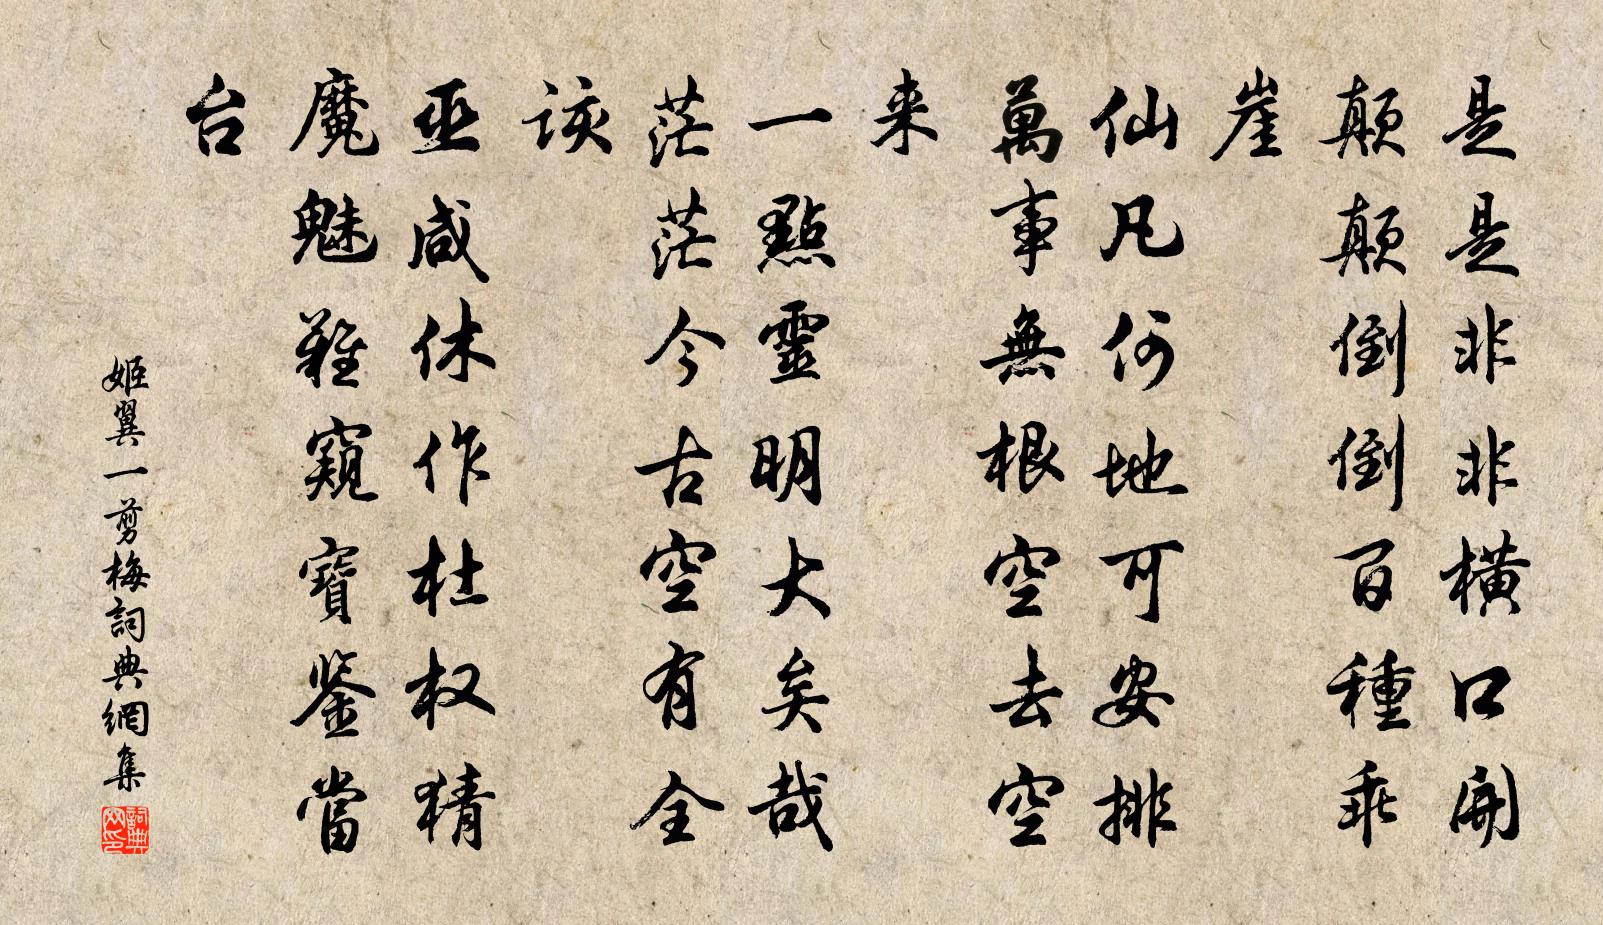 是是非非橫口開
顛顛倒倒百種乖
崖
仙凡何地可安排
萬事無根空去空
来
一點靈明大矣哉
茫茫今古空有全
該
巫咸休作杜权猜
魔魅難窺寶鉴當
台
姬翼一剪梅詞典網集
詞典网印